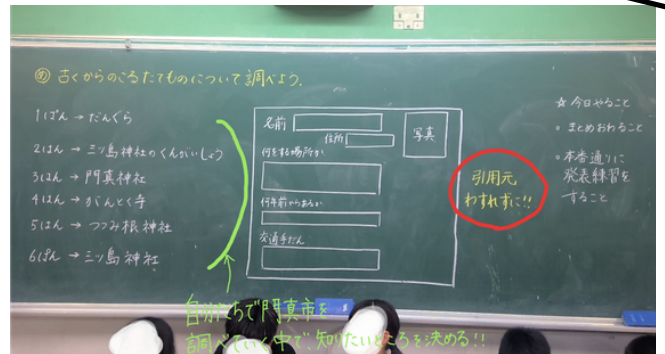 め 古くからのこるたてものについて調べよう.
1ぱん → だんぐら
2はん → 三ッ島神社のくんがいしょう
3はん → 門真神社
4はん → がんとく寺
5はん → つつみ根神社
6ぱん → 三ッ島神社
名前
住所
写真
何をする場所か
何年前からあるか
交通手だん
引用元
わすれずに!!
☆ 今日やること
・まとめおわること
・本番通りに
発表練習を
すること
自分たちで門真市を
調べていく中で、知りたいところを決める!!